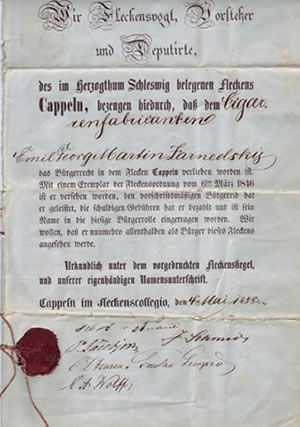 Wir Fleckensvogt, Vorsteher
und Deputirte,
des im Herzogthum Schleswig belegenen Fleckens
Cappeln, bezeugen hiedurch, daß dem Cigar
renfabricanten
Emil Georg Martin
das Bürgerrecht in dem Flecken Cappeln verliehen worden ist.
Mit einem Exemplar der Fleckensordnung vom 6ten März 1846
ist er versehen worden, den vorschriftsmäßigen Bürgereid hat
er geleistet, die schuldigen Gebühren hat er bezahlt und ist sein
Name in die diesige Bürgerrolle eingetragen worden. Wir
wollen, daß er nunmehro allenthalben als Bürger dieses Fleckens
angesehen werde.
Urkundlich unter dem vorgedruckten Fleckenssiegel,
und unserer eigenhändigen Namensunterschrift.
Cappeln im Fleckenscollegio, den 4. Mai
J. Schmidt
C. A. Wolff